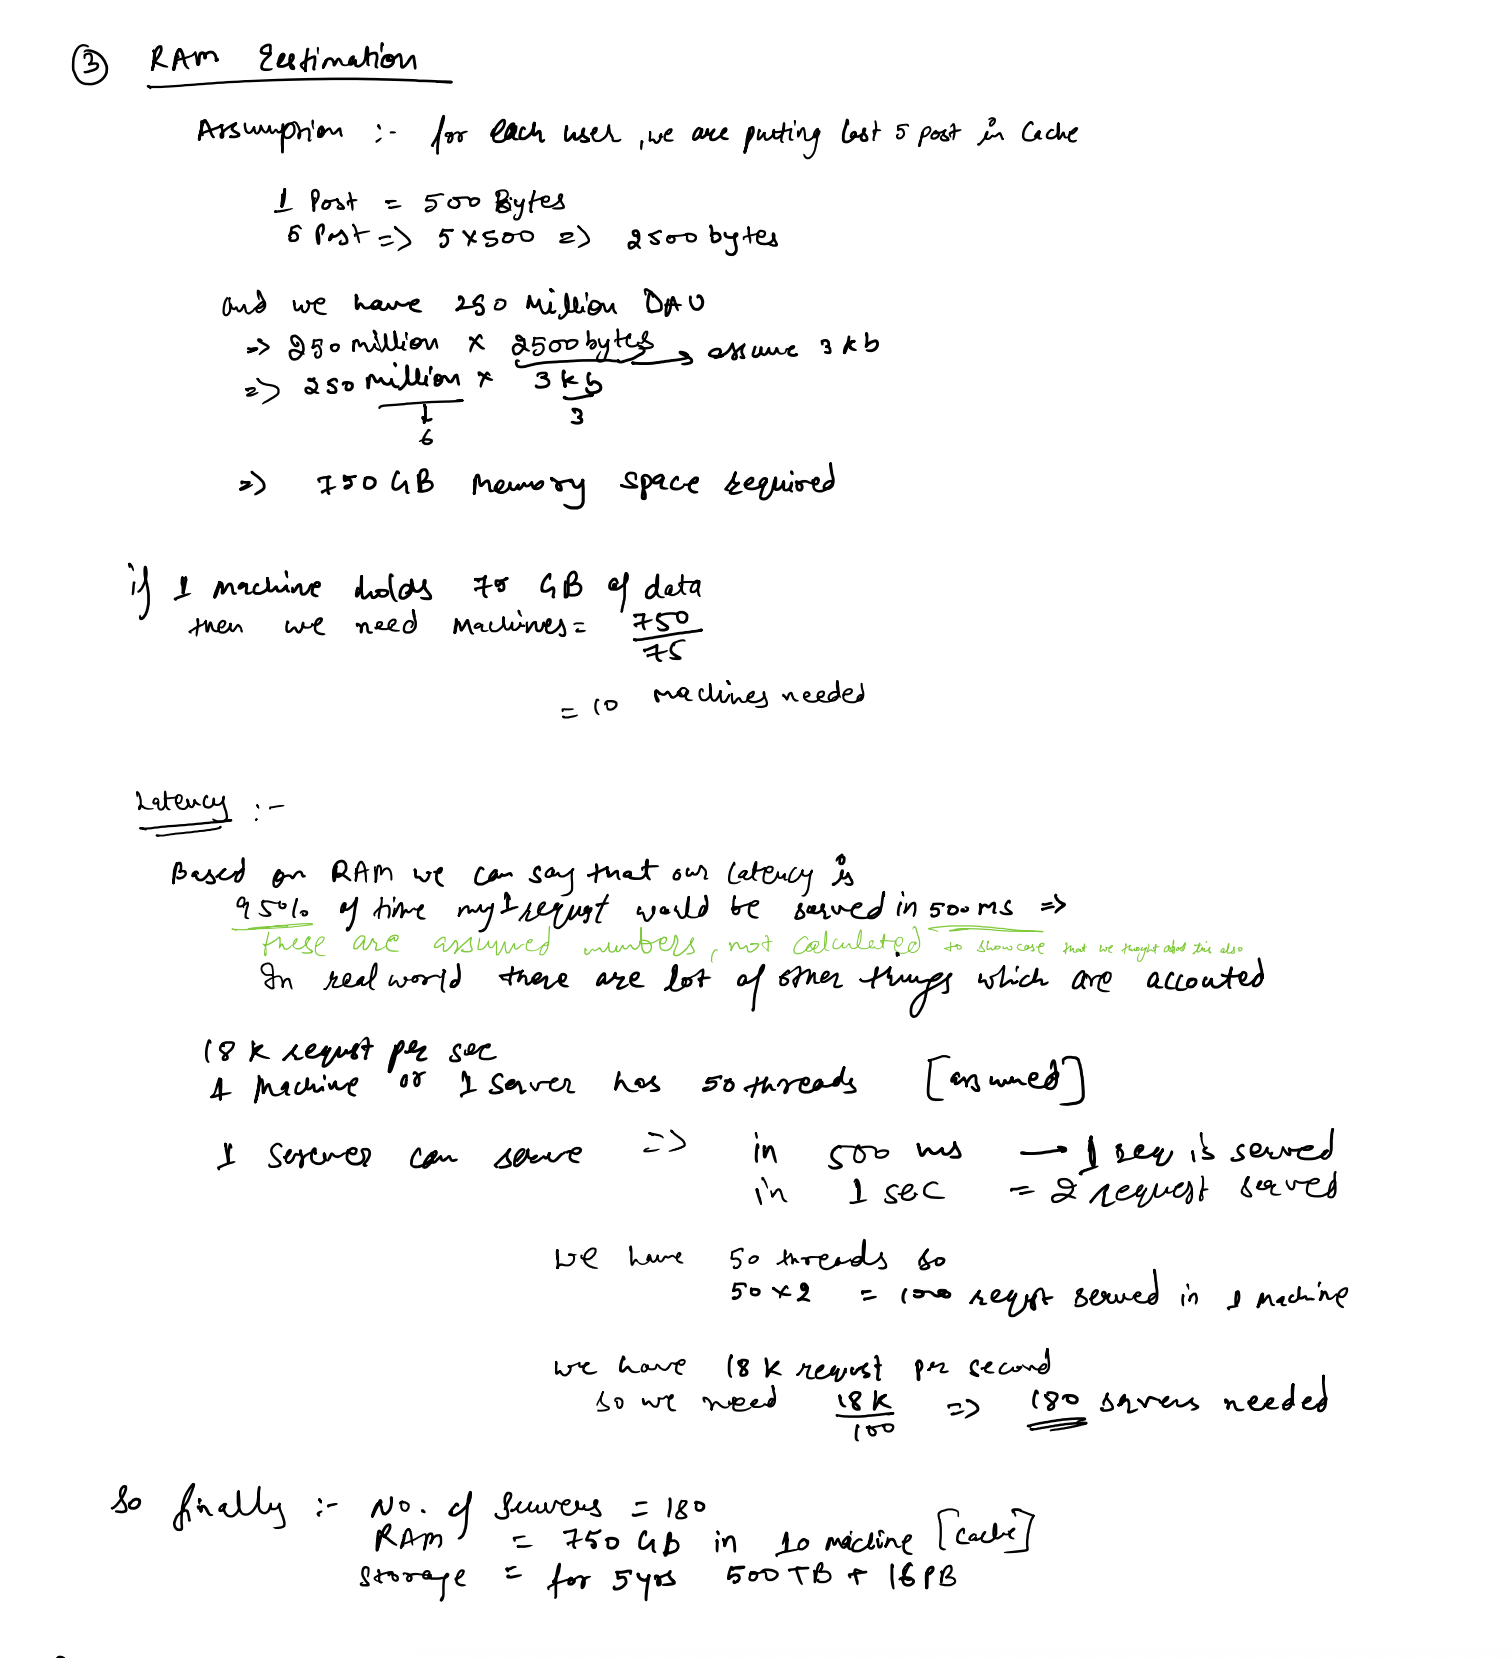 ③ RAM Eestimation
Assumption :- for each user, we are putting last 5 post in Cache
1 Post = 500 Bytes
5 Post => 5 x 500 => 2500 bytes
and we have 250 Million DAU
=> 250 million x 2500 bytes → assume 3 kb
=> 250 million x 3 kb
6 3
=> 750 GB Memory space required
if 1 machine holds 75 GB of data
then we need Machines = 750/75
= 10 machines needed
Latency :-
Based on RAM we can say that our latency is
95% of time my 1 request would be served in 500 ms =>
these are assumed numbers, not calculated to showcase that we thought about this also
In real world there are lot of other things which are accouted
18 K request per sec
1 Machine or 1 Server has 50 threads [assumed]
1 Server can serve => in 500 ms → 1 req is served
in 1 sec = 2 request served
we have 50 threads so
50 x 2 = 100 request served in 1 machine
we have 18 K request per second
so we need 18 K/100 => 180 servers needed
So finally :- No. of Servers = 180
RAM = 750 GB in 10 machine [cache]
Storage = for 5 yrs 500 TB + 16 PB